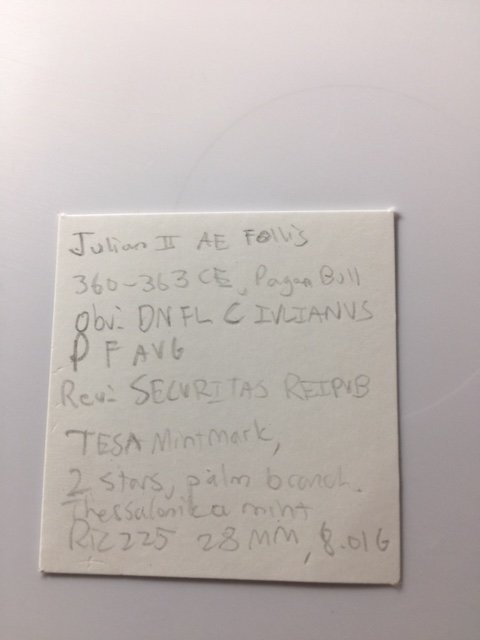 Julian II AE Follis
360-363 CE, Pagan Bull
Obv: DN FL C IVLIANVS
P F AVG
Rev: SECVRITAS REIPVB
TESA Mintmark,
2 stars, palm branch.
Thessalonica mint
RIC 225 28 MM, 8.01G